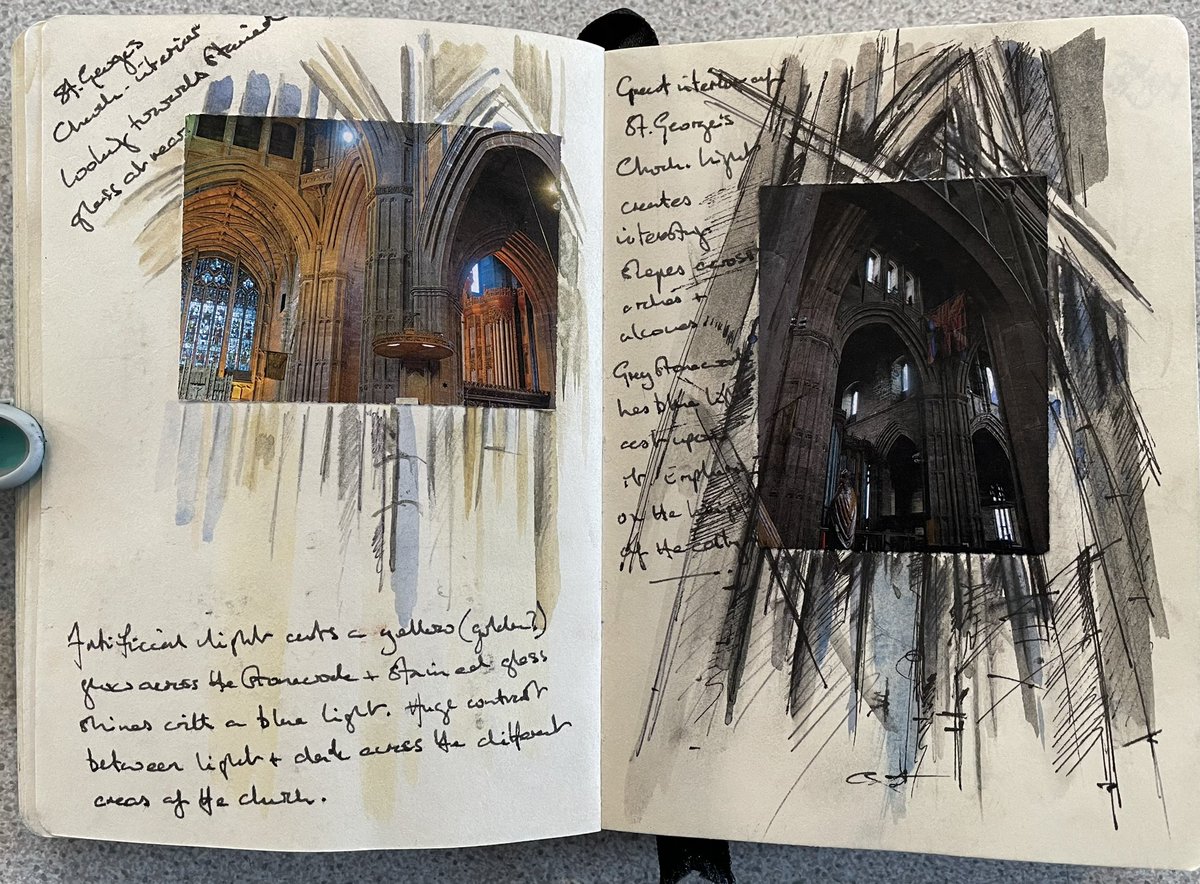 St. George's
Church - interior
looking towards stained
glass at rear
Artificial light casts a yellow (golden?)
glow across the stonework + stained glass
shines with a blue light. Huge contrast
between light + dark across the different
areas of the church.
Great interior of
St. George's
Church. Light
creates
interesting
shapes across
arches +
alcoves
Grey stonework
has blue
cast upon
it. Emphasis
on the
of the